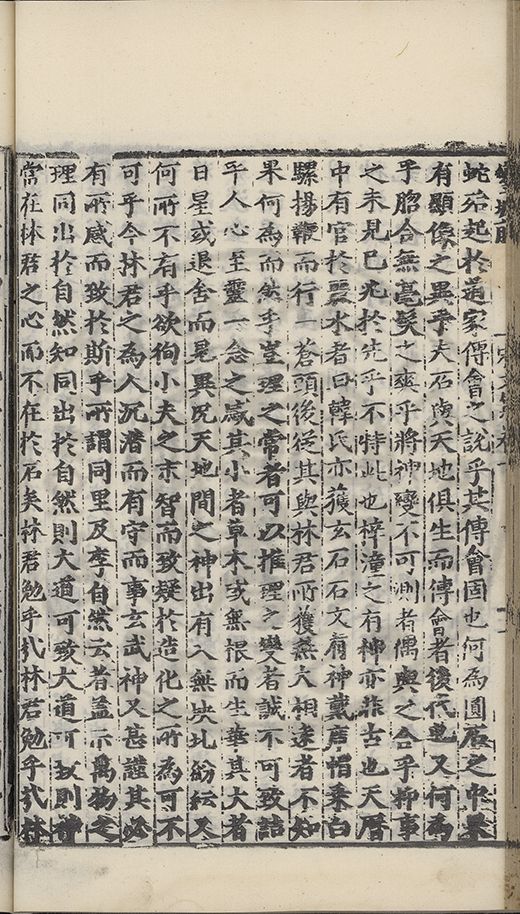 蛇若起於道家傅會之説乎其傅會固也何為圓石之中果
有顯像之異乎夫石與天地俱生而傅會者後代也又何為
乎脗合無毫髮之爽乎將神變不可測者偶與之合乎抑事
之未見已兆於先乎不特此也梓潼之有神亦非古也天曆
中有官於麗水者曰韓氏亦獲玄石石文有神戴唐帽乘白
騾揚鞭而行一蒼頭後從其與林君所獲蓋大相遠者不知
果何為而然乎豈理之常者可以推理之變者誠不可致詰
乎人心至靈一念之感其小者草木或無根而生華其大者
日星或退舍而晃異況天地間之神出有入無坱圠紛紜又
何所不有乎欲徇小夫之末智而致疑於造化之所為可不
可乎今林君之為人沉潛而有守而事玄武神又甚謹其必
有所感而致於斯乎所謂同里及李自然云者蓋示萬物之
理同出於自然知同出於自然則大道可致大道可致則神
常在林君之心而不在於石矣林君勉乎㢤林君勉乎㢤林